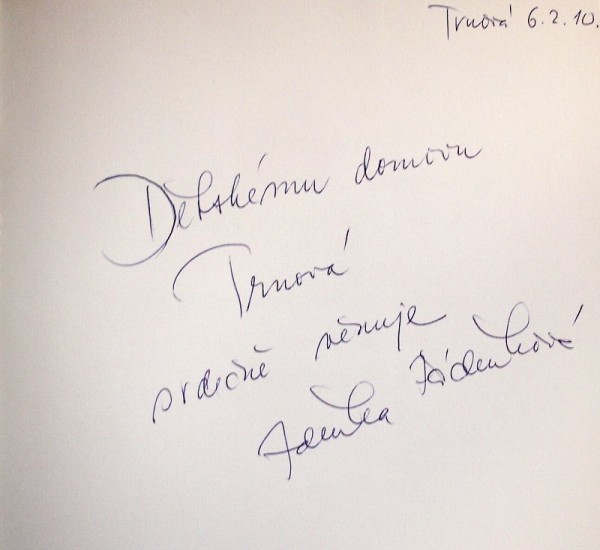 Trnová 6.2.10.
Dětskému domovu
Trnová
srdečně věnuje